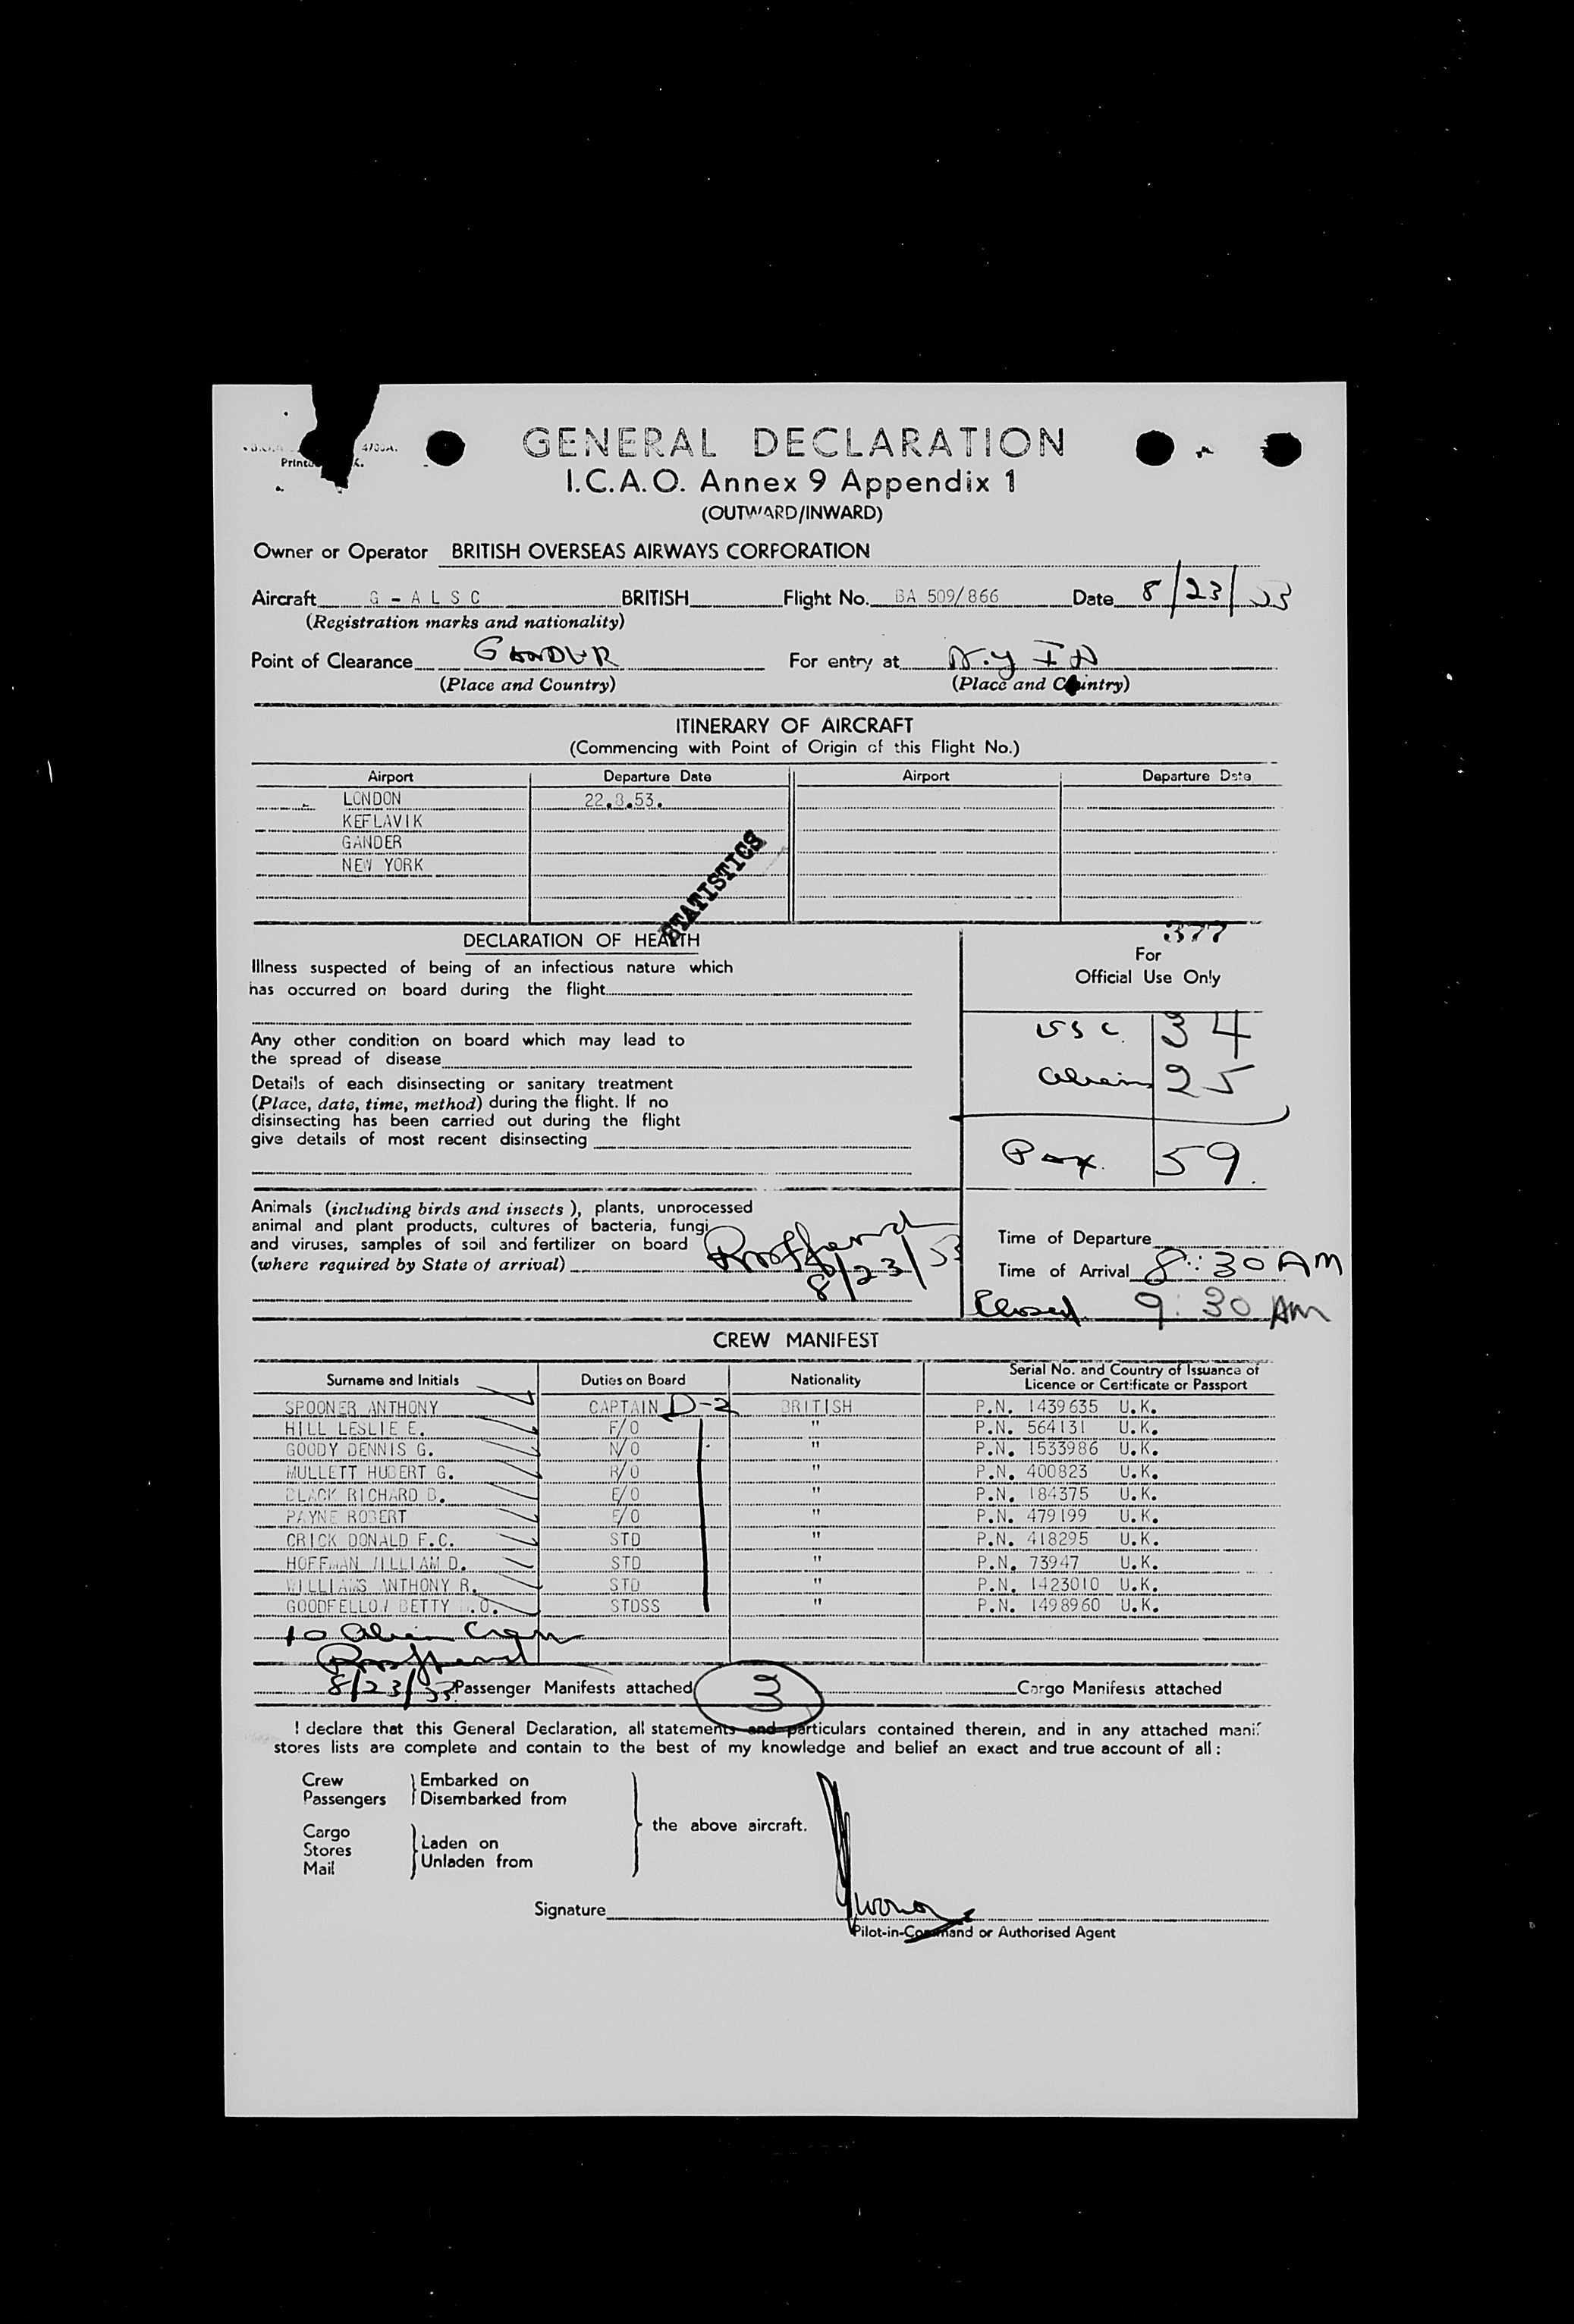 4703A.
GENERAL DECLARATION
I.C.A.O. Annex 9 Appendix 1
(OUTWARD/INWARD)
Owner or Operator BRITISH OVERSEAS AIRWAYS CORPORATION
Aircraft G - A L S C BRITISH Flight No. BA 509/866 Date 8/23/53
(Registration marks and nationality)
Point of Clearance GANDER For entry at N.Y
(Place and Country) (Place and Country)
ITINERARY OF AIRCRAFT
(Commencing with Point of Origin of this Flight No.)
Airport Departure Date Airport Departure Date
LONDON 22.8.53.
KEFLAVIK
GANDER
NEW YORK
STATISTICS
377
DECLARATION OF HEALTH
For
Official Use Only
Illness suspected of being of an infectious nature which
has occurred on board during the flight
USC 34
Any other condition on board which may lead to
the spread of disease
Aliens 25
Details of each disinsecting or sanitary treatment
(Place, date, time, method) during the flight. If no
disinsecting has been carried out during the flight
give details of most recent disinsecting
Pax. 59.
Animals (including birds and insects), plants, unprocessed
animal and plant products, cultures of bacteria, fungi
and viruses, samples of soil and fertilizer on board
(where required by State of arrival)
8/23/53
Time of Departure
Time of Arrival 8:30 AM
Closed 9:30 AM
CREW MANIFEST
Surname and Initials Duties on Board Nationality Serial No. and Country of Issuance of Licence or Certificate or Passport
SPOONER ANTHONY CAPTAIN D-2 BRITISH P.N. 1439635 U.K.
HILL LESLIE E. F/O " P.N. 564131 U.K.
GOODY DENNIS G. N/O " P.N. 1533986 U.K.
MULLETT HUBERT G. R/O " P.N. 400823 U.K.
BLACK RICHARD B. E/O " P.N. 184375 U.K.
PAYNE ROBERT E/O " P.N. 479199 U.K.
CRICK DONALD F.C. STD " P.N. 418295 U.K.
HOFFMAN WILLIAM D. STD " P.N. 73947 U.K.
WILLIAMS ANTHONY R. STD " P.N. 1423010 U.K.
GOODFELLOW BETTY .O. STDSS " P.N. 1498960 U.K.
10 Alien Crew
8/23/53
Passenger Manifests attached 3 Cargo Manifests attached
I declare that this General Declaration, all statements and particulars contained therein, and in any attached manif
stores lists are complete and contain to the best of my knowledge and belief an exact and true account of all:
Crew Embarked on
Passengers Disembarked from
the above aircraft.
Cargo
Stores Laden on
Mail Unladen from
Signature
Pilot-in-Command or Authorised Agent